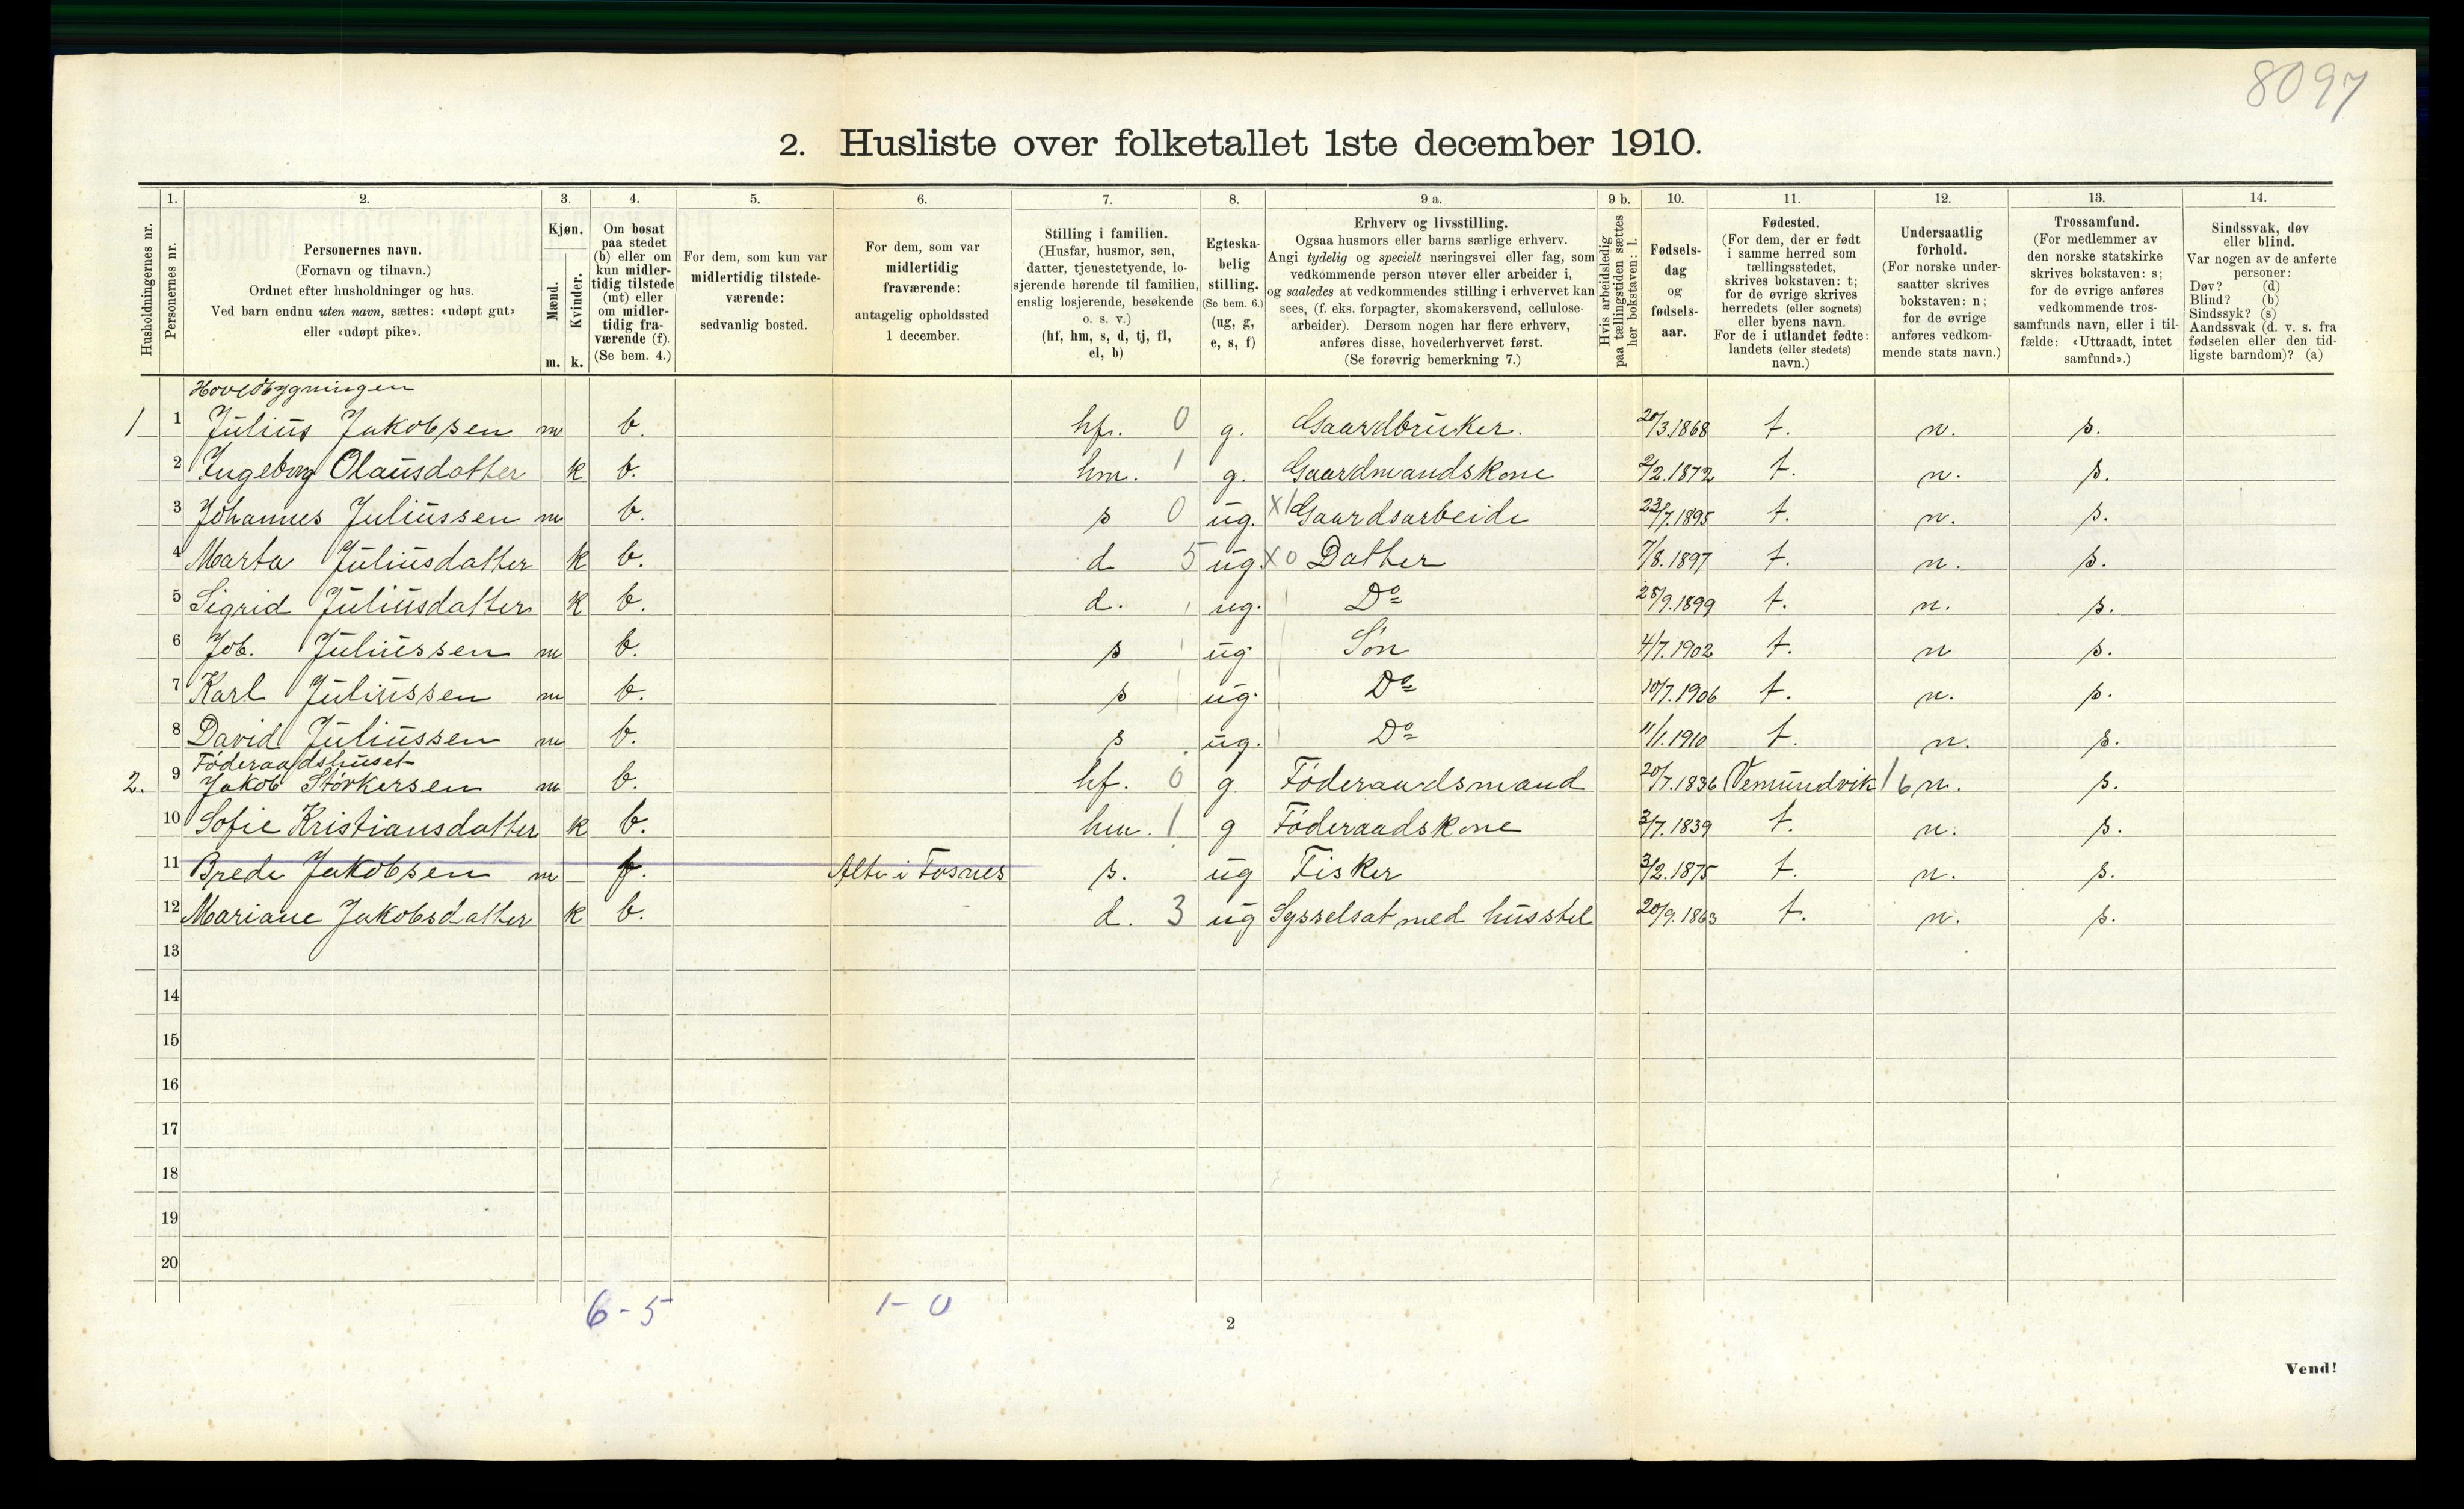 8097
2. Husliste over folketallet 1ste december 1910.
Husholdningernes nr.
1. Personernes nr.
2. Personernes navn.
(Fornavn og tilnavn.)
Ordnet efter husholdninger og hus.
Ved barn endnu uten navn, sættes: «udøpt gut»
eller «udøpt pike».
3. Kjøn.
Mænd. m.
Kvinder. k.
4. Om bosat
paa stedet
(b) eller om
kun midler-
tidig tilstede
(mt) eller
om midler-
tidig fra-
værende (f).
(Se bem. 4.)
5. For dem, som kun var
midlertidig tilstede-
værende:
sedvanlig bosted.
6. For dem, som var
midlertidig
fraværende:
antagelig opholdssted
1 december.
7. Stilling i familien.
(Husfar, husmor, søn,
datter, tjenestetyende, lo-
sjerende hørende til familien,
enslig losjerende, besøkende
o. s. v.)
(hf, hm, s, d, tj, fl,
el, b)
8. Egteska-
belig
stilling.
(Se bem. 6.)
(ug, g,
e, s, f)
9 a. Erhverv og livsstilling.
Ogsaa husmors eller barns særlige erhverv.
Angi tydelig og specielt næringsvei eller fag, som
vedkommende person utøver eller arbeider i,
og saaledes at vedkommendes stilling i erhvervet kan
sees, (f. eks. forpagter, skomakersvend, cellulose-
arbeider). Dersom nogen har flere erhverv,
anføres disse, hovederhvervet først.
(Se forøvrig bemerkning 7.)
9 b. Hvis arbeidsledig
paa tællingstiden sættes
her bokstaven: l.
10. Fødsels-
dag
og
fødsels-
aar.
11. Fødested.
(For dem, der er født
i samme herred som
tællingsstedet,
skrives bokstaven: t;
for de øvrige skrives
herredets (eller sognets)
eller byens navn.
For de i utlandet fødte:
landets (eller stedets)
navn.)
12. Undersaatlig
forhold.
(For norske under-
saatter skrives
bokstaven: n;
for de øvrige
anføres vedkom-
mende stats navn.)
13. Trossamfund.
(For medlemmer av
den norske statskirke
skrives bokstaven: s;
for de øvrige anføres
vedkommende tros-
samfunds navn, eller i til-
fælde: «Uttraadt, intet
samfund».)
14. Sindssvak, døv
eller blind.
Var nogen av de anførte
personer:
Døv? (d)
Blind? (b)
Sindssyk? (s)
Aandssvak (d. v. s. fra
fødselen eller den tid-
ligste barndom)? (a)
Hovedbygningen
1 1 Julius Jakobsen m b. hf. 0 g. Gaardbruker. 20/3.1868 t. n. s.
2 Ingeborg Olausdatter k b. hm. 1 g. Gaardmandskone 2/2.1872 t. n. s.
3 Johannes Juliussen m b. s 0 ug. X1 Gaardsarbeide 23/7.1895 t. n. s.
4 Marta Juliusdatter k b. d 5 ug. X0 Datter 7/8.1897 t. n. s.
5 Sigrid Juliusdatter k b. d. ug. Do 28/9.1899 t. n. s.
6 Job. Juliussen m b. s ug Søn 4/7.1902 t. n s.
7 Karl Juliussen m b. s ug. Do 10/7.1906 t. n. s.
8 David Juliussen m b. s ug. Do 11/1.1910 t. n. s.
Föderaadshuset
2. 9 Jakob Størkersen m b. hf. 0 g Föderaadsmand 20/7.1836 Vemundvik 16 n. s.
10 Sofie Kristiansdatter k b. hm. 1 g Föderaadskone 3/7.1839 t. n. s.
11 Brede Jakobsen m f. Alte i Fosnes s. ug Fisker 3/2.1875 t. n. s.
12 Mariane Jakobsdatter k b. d. 3 ug Sysselsat med husstel 20/9.1863 t. n. s.
13
14
15
16
17
18
19
20
6-5 1-0
2
Vend!